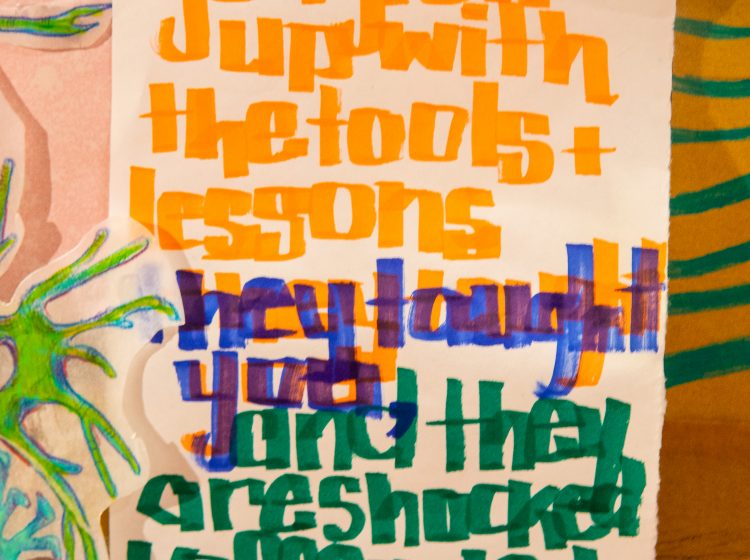 up with
the tools +
lessons
they taught
you,
and they
are shocked